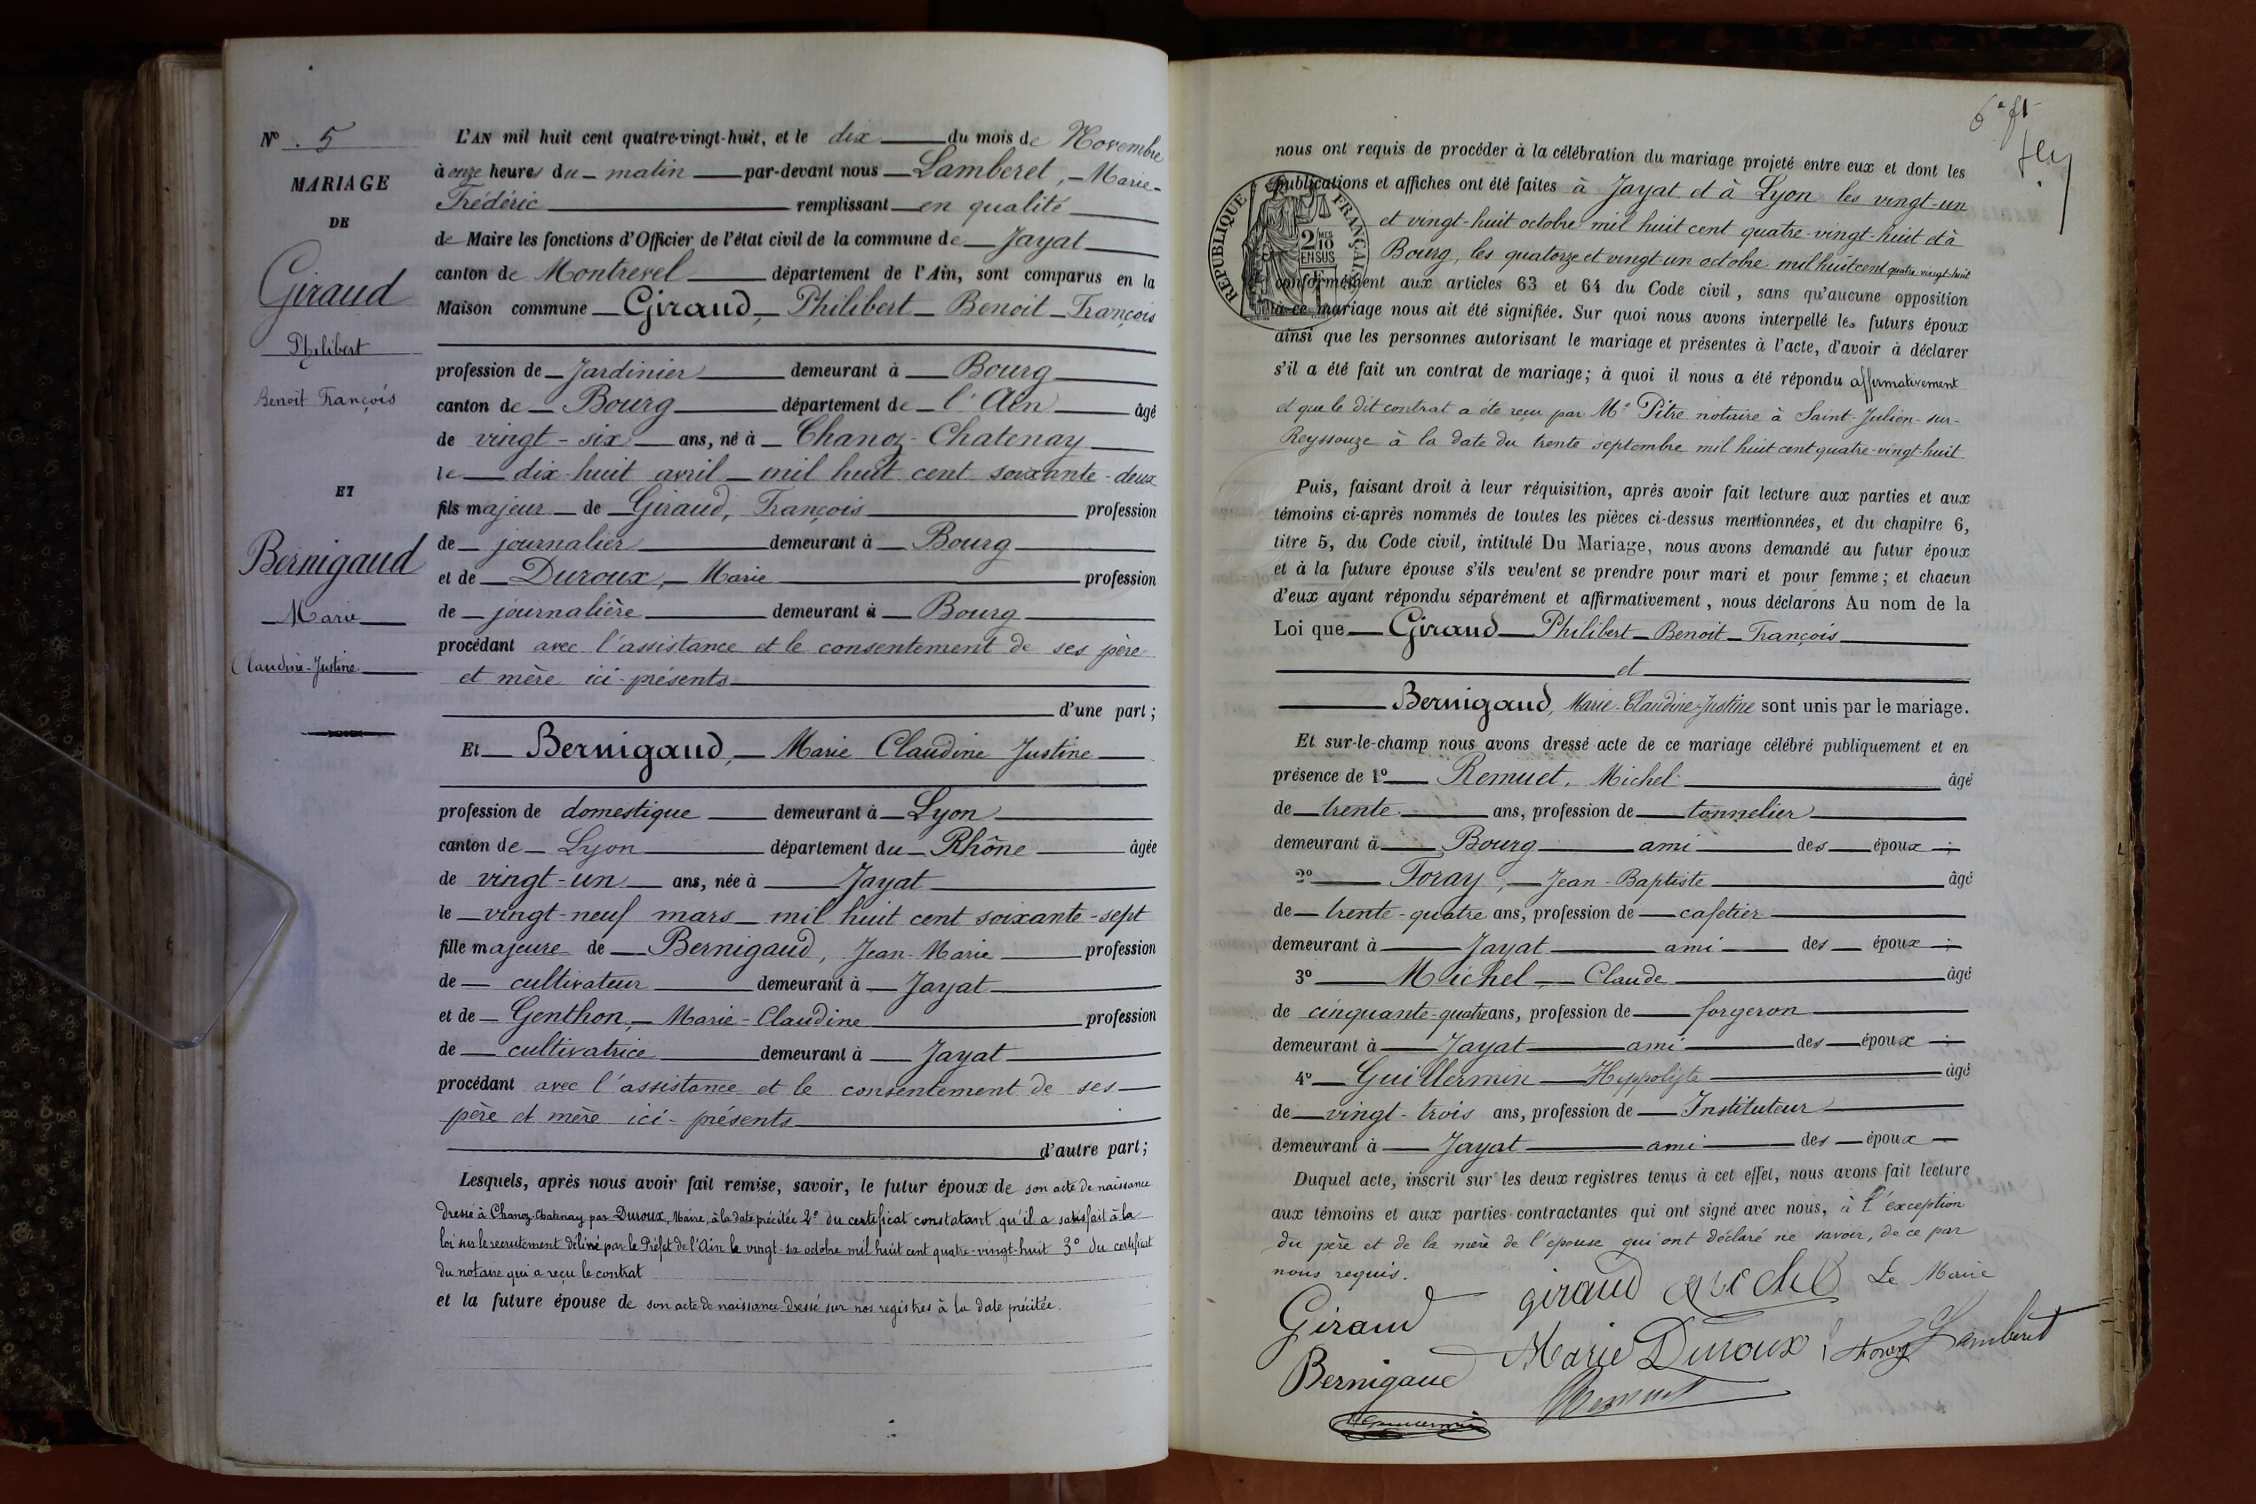 N° 5
MARIAGE
DE
Giraud
Philibert
Benoit François
ET
Bernigaud
Marie
Claudine-Justine
L'AN mil huit cent quatre-vingt-huit, et le dix du mois de Novembre
à onze heures du matin par-devant nous Lamberet, Marie-
Frédéric remplissant en qualité
de Maire les fonctions d'Officier de l'état civil de la commune de Jayat
canton de Montrevel département de l'Ain, sont comparus en la
Maison commune Giraud, Philibert Benoit François
profession de Jardinier demeurant à Bourg
canton de Bourg département de l'Ain âgé
de vingt-six ans, né à Chanoz-Chatenay
le dix-huit avril mil huit cent soixante-deux
fils majeur de Giraud, François profession
de journalier demeurant à Bourg
et de Duroux, Marie profession
de journalière demeurant à Bourg
procédant avec l'assistance et le consentement de ses père
et mère ici-présents
d'une part;
Et Bernigaud, Marie Claudine Justine
profession de domestique demeurant à Lyon
canton de Lyon département du Rhône âgée
de vingt-un ans, née à Jayat
le vingt-neuf mars mil huit cent soixante-sept
fille majeure de Bernigaud, Jean-Marie profession
de cultivateur demeurant à Jayat
et de Genthon, Marie-Claudine profession
de cultivatrice demeurant à Jayat
procédant avec l'assistance et le consentement de ses
père et mère ici-présents
d'autre part;
Lesquels, après nous avoir fait remise, savoir, le futur époux de son acte de naissance
dressé à Chanoz-Chatenay par Duroux, Maire, à la date précitée 2° du certificat constatant qu'il a satisfait à la
loi sur le recrutement délivré par le Préfet de l'Ain le vingt-six octobre mil huit cent quatre-vingt-huit 3° du certificat
du notaire qui a reçu le contrat
et la future épouse de son acte de naissance dressé sur nos registres à la date précitée.
nous ont requis de procéder à la célébration du mariage projeté entre eux et dont les
publications et affiches ont été faites à Jayat et à Lyon les vingt-un
et vingt-huit octobre mil huit cent quatre-vingt-huit et à
Bourg, les quatorze et vingt-un octobre mil huit cent quatre-vingt-huit
conformément aux articles 63 et 64 du Code civil, sans qu'aucune opposition
à ce mariage nous ait été signifiée. Sur quoi nous avons interpellé les futurs époux
ainsi que les personnes autorisant le mariage et présentes à l'acte, d'avoir à déclarer
s'il a été fait un contrat de mariage; à quoi il nous a été répondu affirmativement
et que le dit contrat a été reçu par Me Pitre notaire à Saint-Julien-sur-
Reyssouze à la date du trente septembre mil huit cent quatre-vingt-huit
RÉPUBLIQUE FRANÇAISE
2 MES
10
EN SUS
Puis, faisant droit à leur réquisition, après avoir fait lecture aux parties et aux
témoins ci-après nommés de toutes les pièces ci-dessus mentionnées, et du chapitre 6,
titre 5, du Code civil, intitulé Du Mariage, nous avons demandé au futur époux
et à la future épouse s'ils veulent se prendre pour mari et pour femme; et chacun
d'eux ayant répondu séparément et affirmativement, nous déclarons Au nom de la
Loi que Giraud Philibert Benoit François
et
Bernigaud, Marie-Claudine-Justine sont unis par le mariage.
Et sur-le-champ nous avons dressé acte de ce mariage célébré publiquement et en
présence de 1° Remuet, Michel âgé
de trente ans, profession de tonnelier
demeurant à Bourg ami des époux;
2° Foray, Jean-Baptiste âgé
de trente-quatre ans, profession de cafetier
demeurant à Jayat ami des époux;
3° Michel, Claude âgé
de cinquante-quatre ans, profession de forgeron
demeurant à Jayat ami des époux;
4° Guillermin Hippolyte âgé
de vingt-trois ans, profession de Instituteur
demeurant à Jayat ami des époux
Duquel acte, inscrit sur les deux registres tenus à cet effet, nous avons fait lecture
aux témoins et aux parties contractantes qui ont signé avec nous, à l'exception
du père et de la mère de l'épouse qui ont déclaré ne savoir, de ce par
nous requis.
Giraud giraud Michel Le Maire
Marie Duroux Foray Lamberet
Bernigaud Remuet
Guillermin